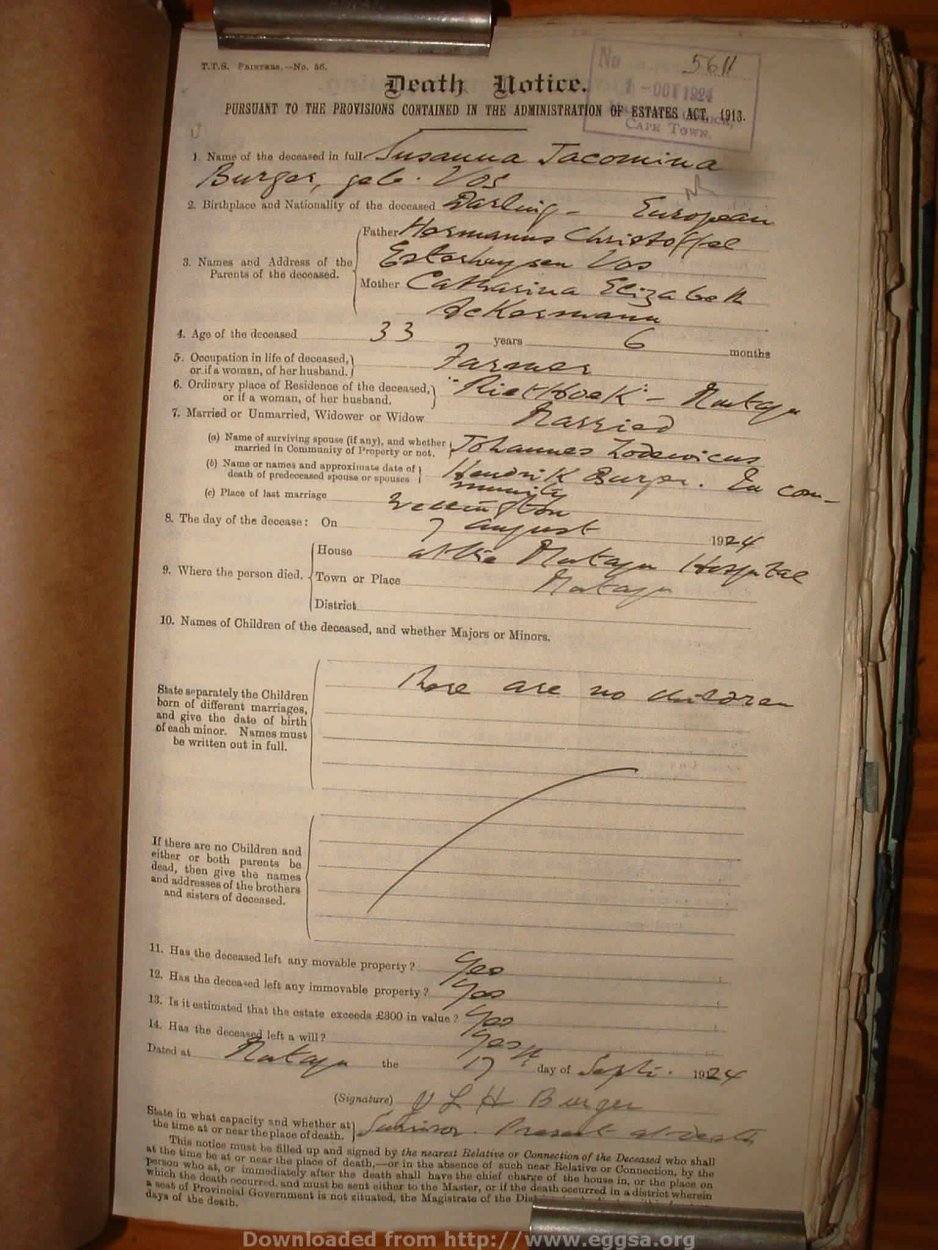 T.T.S. PRINTERS.—No. 56.
No 5611
1 - OCT 1924
CAPE TOWN.
Death Notice.
PURSUANT TO THE PROVISIONS CONTAINED IN THE ADMINISTRATION OF ESTATES ACT, 1913.
1. Name of the deceased in full Susanna Jacomina
Burger, geb. Vos
2. Birthplace and Nationality of the deceased Darling - European
3. Names and Address of the Parents of the deceased.
Father Hermanus Christoffel
Esterhuysen Vos
Mother Catharina Elizabeth
Ackermann
4. Age of the deceased 33 years 6 months
5. Occupation in life of deceased,
or if a woman, of her husband. Farmer
6. Ordinary place of Residence of the deceased,
or if a woman, of her husband. "Rietkloof" -
7. Married or Unmarried, Widower or Widow Married
(a) Name of surviving spouse (if any), and whether
married in Community of Property or not. Johannes Lodewicus
(b) Name or names and approximate date of
death of predeceased spouse or spouses Hendrik Burger. In com-
munity
(c) Place of last marriage Wellington
8. The day of the decease: On 7 August 1924
9. Where the person died.
House at the Hospital
Town or Place
District
10. Names of Children of the deceased, and whether Majors or Minors.
State separately the Children
born of different marriages,
and give the date of birth
of each minor. Names must
be written out in full.
There are no children
If there are no Children and
either or both parents be
dead, then give the names
and addresses of the brothers
and sisters of deceased.
11. Has the deceased left any movable property? Yes
12. Has the deceased left any immovable property? Yes
13. Is it estimated that the estate exceeds £300 in value? Yes
14. Has the deceased left a will? Yes
Dated at the 17th day of Septr. 1924
(Signature) J L H Burger
State in what capacity and whether at
the time at or near the place of death. Survivor. Present at death
This notice must be filled up and signed by the nearest Relative or Connection of the Deceased who shall
at the time be at or near the place of death,—or in the absence of such near Relative or Connection, by the
person who at, or immediately after the death shall have the chief charge of the house in, or the place on
which the death occurred, and must be sent either to the Master, or if the death occurred in a district wherein
a seat of Provincial Government is not situated, the Magistrate of the
days of the death.
Downloaded from http://www.eggsa.org